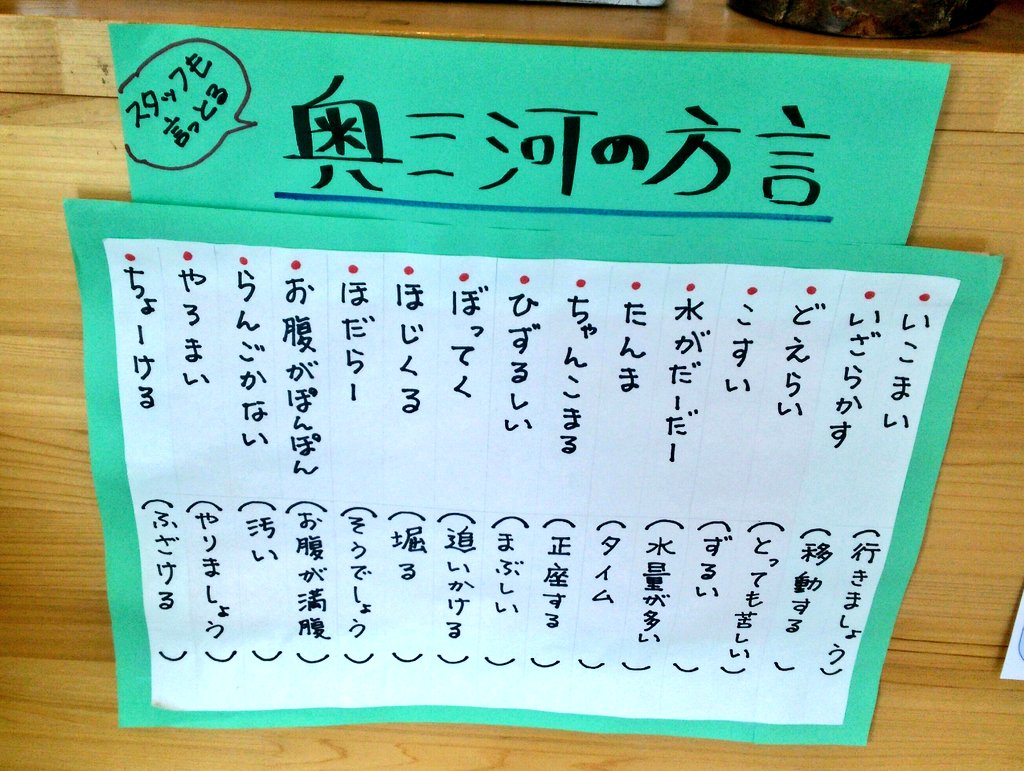 スタッフも
言っとる
奥三河の方言
・いこまい（行きましょう）
・いざらかす（移動する）
・どえらい（とっても苦しい）
・こすい（ずるい）
・水がだーだー（水量が多い）
・たんま（タイム）
・ちゃんこまる（正座する）
・ひずるしい（まぶしい）
・ぼってく（追いかける）
・ほじくる（堀る）
・ほだらー（そうでしょう）
・お腹がぽんぽん（お腹が満腹）
・らんごかない（汚い）
・やろまい（やりましょう）
・ちょーける（ふざける）